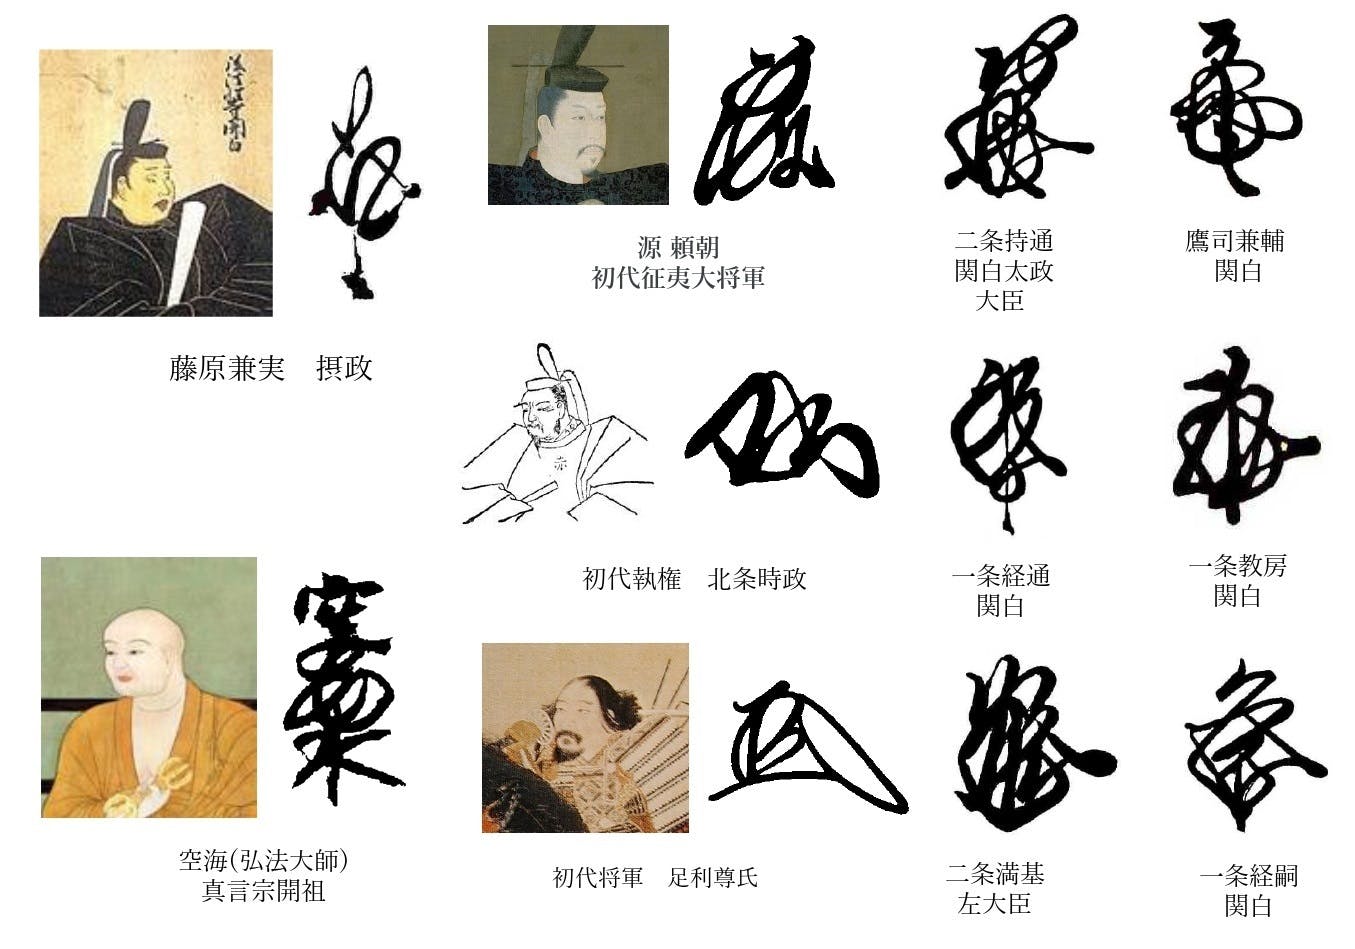 藤原兼実　摂政
空海(弘法大師)
真言宗開祖
源 頼朝
初代征夷大将軍
初代執権　北条時政
初代将軍　足利尊氏
二条持通
関白太政
大臣
鷹司兼輔
関白
一条経通
関白
一条教房
関白
二条満基
左大臣
一条経嗣
関白